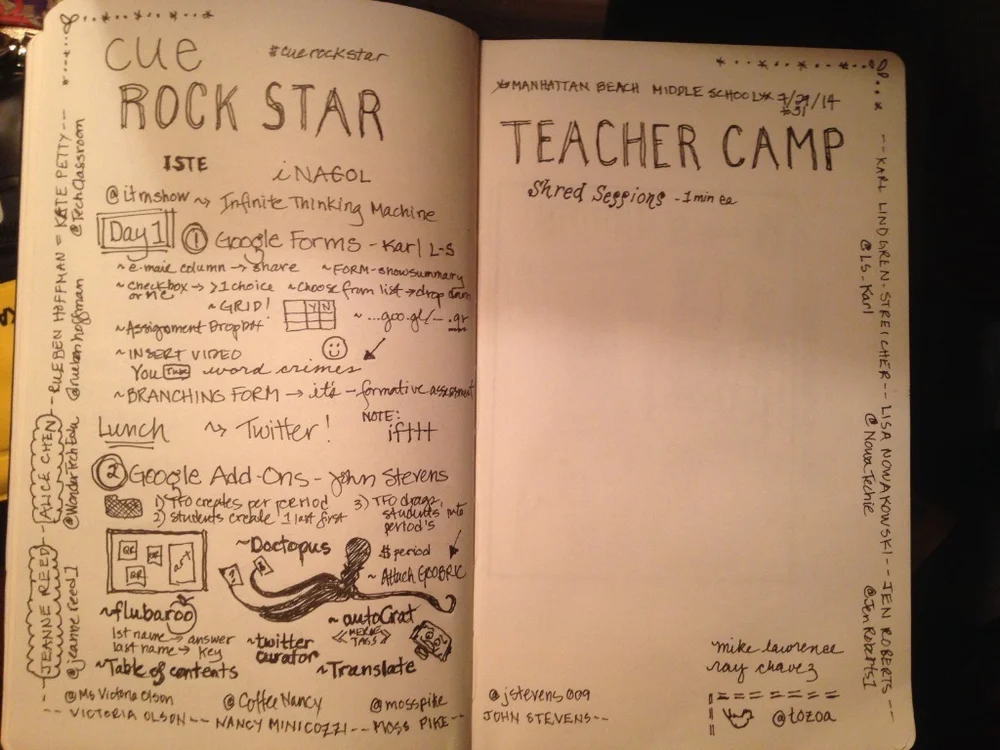 cue
#cuerockstar
ROCK STAR
ISTE
iNACOL
@itmshow ~> Infinite Thinking Machine
Day 1
① Google Forms - Karl L-S
~e-mail column → share
~FORM-showsummary
~checkbox → >1 choice
or me
~choose from list → drop down
~GRID!
Y N
~Assignment Dropbox
~ ...goo.gl/—.qr
~INSERT VIDEO
You Tube word crimes
~BRANCHING FORM → it's - formative assessment
NOTE:
ifttt
Lunch ~> Twitter!
② Google Add-Ons - John Stevens
1) TFO creates per period
2) students create 1 last first
3) TFO drags
students' into
period's
~Doctopus
$ period
~Attach GOOBRIC
~flubaroo
1st name → answer
last name → key
~twitter
curator
~autoCrat
<<MERGE
TAGS>>
~Table of contents
~Translate
@MsVictoriaOlson
@CoffeeNancy
@mosspike
-- VICTORIA OLSON -- NANCY MINICOZZI -- MOSS PIKE --
JEANNE REED -- ALICE CHEN -- RUEBEN HOFFMAN = KATE PETTY --
@jeannereed1
@WonderTechEdu
@ruebenhoffman
@TechClassroom
MANHATTAN BEACH MIDDLE SCHOOL 7/29/14
#31
TEACHER CAMP
Shred Sessions - 1 min ea
-- KARL LINDGREN-STREICHER -- LISA NOWAKOWSKI -- JEN ROBERTS --
@LS-Karl
@NowaTechie
@JenRoberts1
mike lawrence
ray chavez
@jstevens009
JOHN STEVENS --
@tozoa